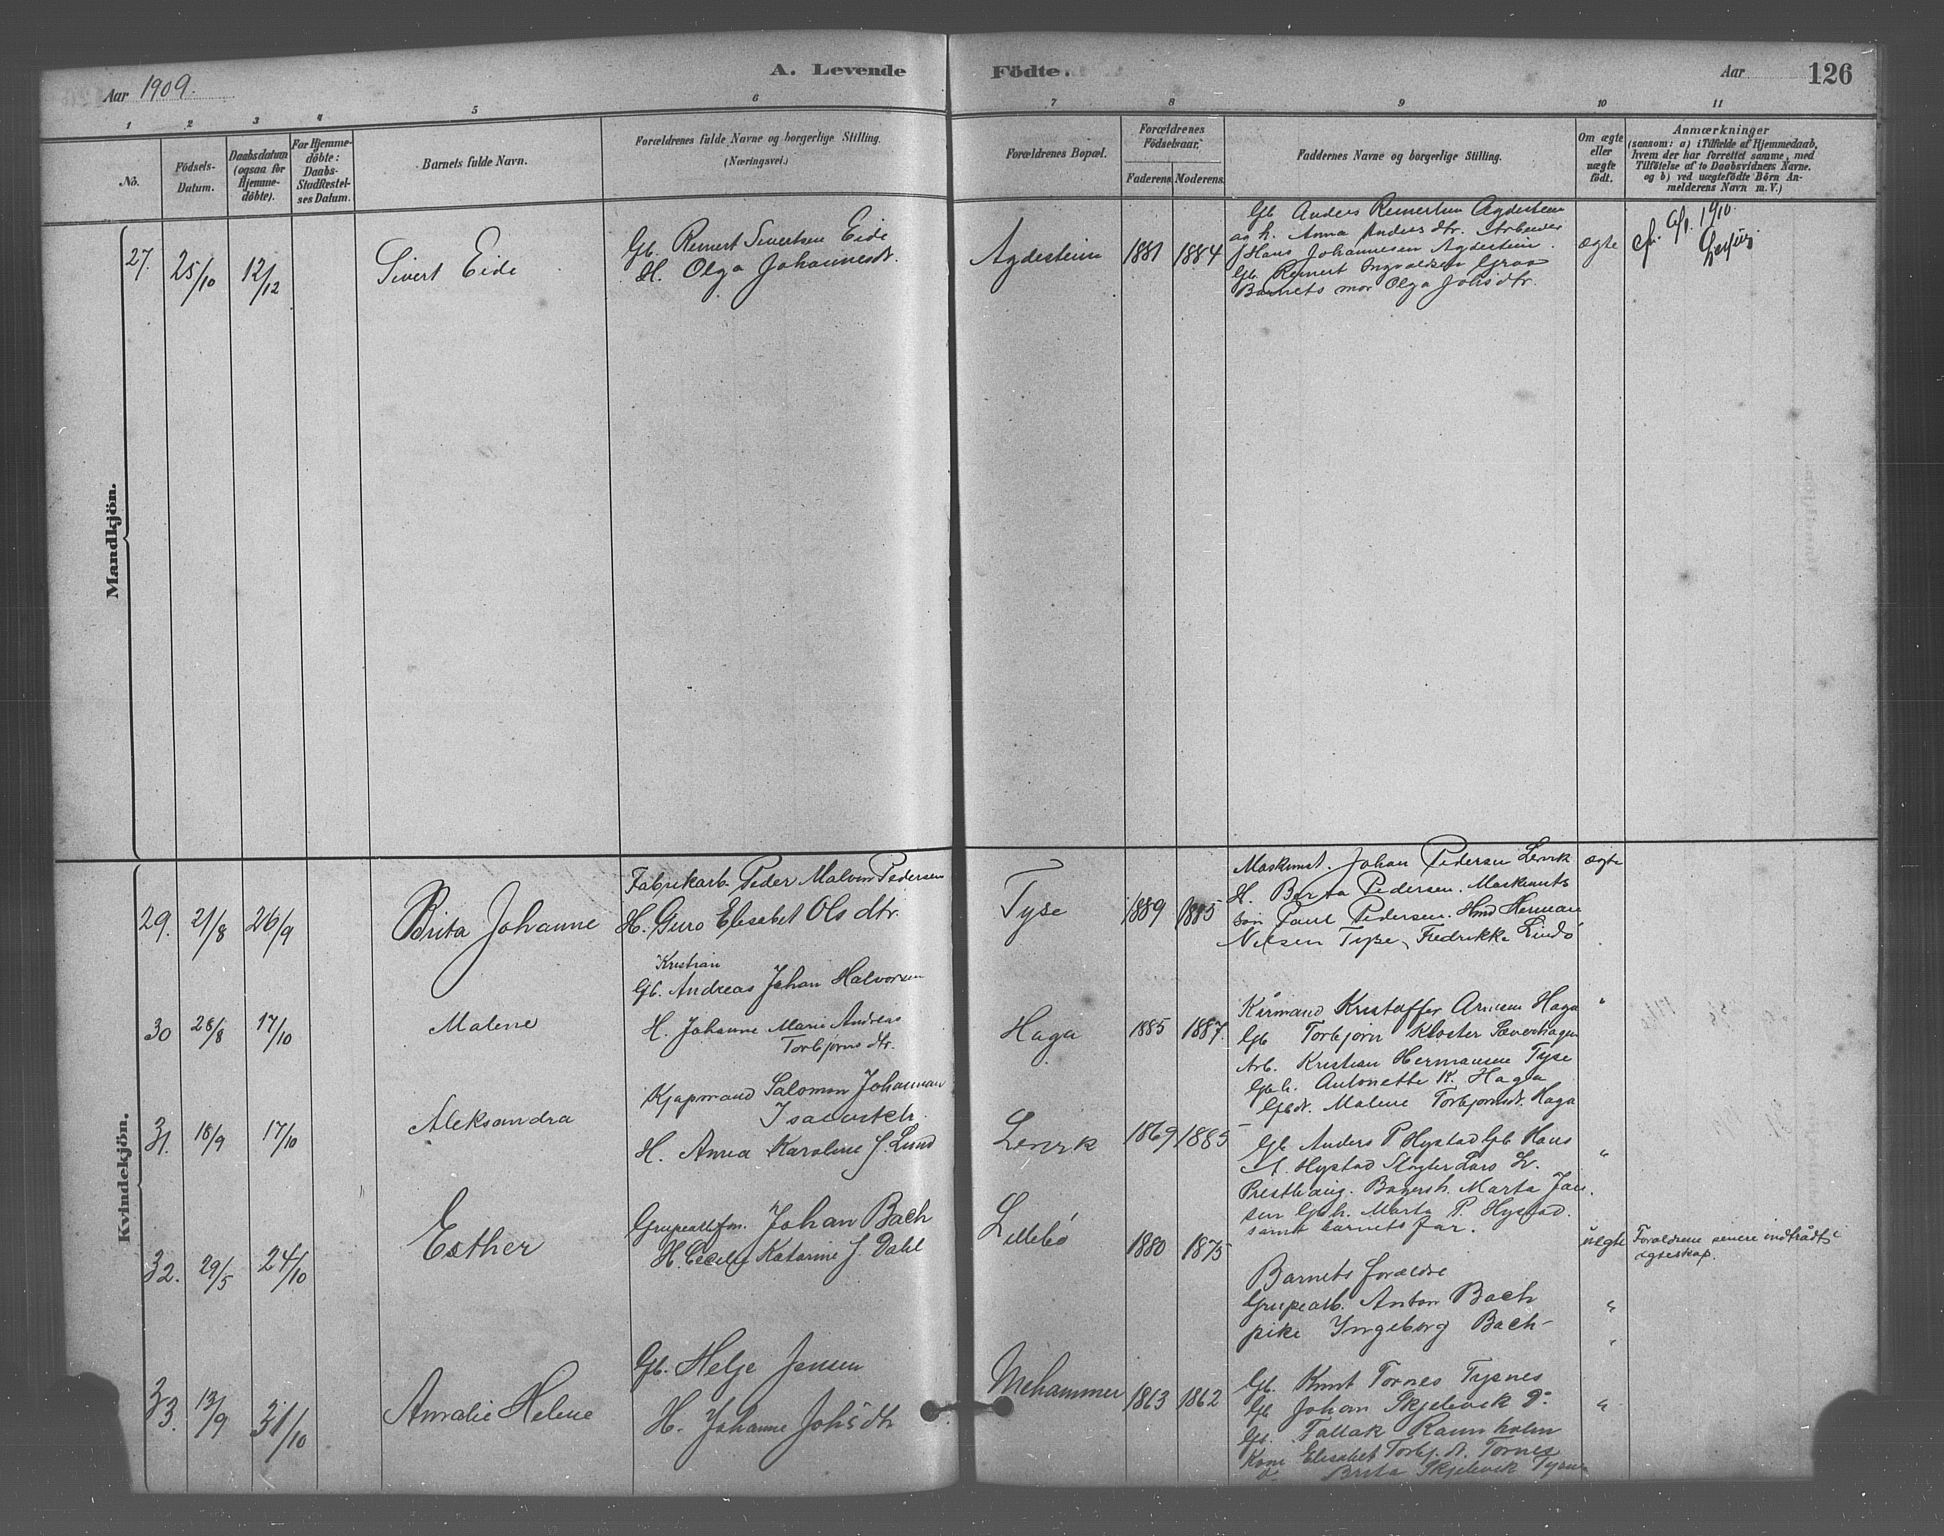 Aar 1909.
A. Levende
Födte.
Aar
126
1 2 3 4 5 6 7 8 9 10 11
No.
Födsels-Datum.
Daabsdatum (ogsaa for Hjemmedöbte).
For Hjemmedöbte: Daabs-Stadfæstelses Datum.
Barnets fulde Navn.
Forældrenes fulde Navne og borgerlige Stilling.
(Næringsvei.)
Forældrenes Bopæl.
Forældrenes Födselsaar.
Faderens
Moderens
Faddernes Navne og borgerlige Stilling.
Om ægte eller uægte födt.
Anmærkninger
(saasom: a) i Tilfælde af Hjemmedaab,
hvem der har forrettet samme, med
Tilföielse af to Daabsvidners Navne.
og b) ved uægtefödte Börn An-
melderens Navn m. V.)
Mandkjön.
27. 25/10 12/12
Sivert Eide
Gb. Reinert Sivertsen Eide
H. Olga Johannesdr.
Agdestein
1881 1884
Gb Anders Reinertsen Agdestein
og h. Anna Andersdtr. Arbeider
Hans Johannessen Agdestein.
Gb. Reinert Ingvaldsen
Barnets mor Olga Johsdtr.
ægte
1910
Kvindekjön.
29. 21/8 26/9
Brita Johanne
Fabrikarb. Peder Malvin Pedersen
H. Guro Elisabet Olsdtr.
Tyse
1889 1885
Maskinist. Johan Pedersen Lervik
H. Berta Pedersen. Maskinists
søn Paul Pedersen. Herman
Nilsen Tyse, Fredrikke Lindö
ægte
30 28/8 17/10
Malene
Kristian
Gb. Andreas Johan Halvorsen
H. Johanne Marie Andrea
Torbjørnsdtr.
Haga
1885 1887.
Kirmand Kristoffer Arnesen Haga
Gb Torbjørn Kloster Sævarhagen
Arb. Kristian Hermansen Tyse
Gbh. Antonette K. Haga
Gbdr. Malene Torbjornsdr. Haga
"
31. 18/9 17/10
Aleksandra
Kjøpmand Salomon Johannan
Isacovitch.
H. Anna Karoline J. Lund
Lervik
1869 1885
Gb Anders P. Hystad Gb Hans
A. Hystad Slagter Lars
Presthaug. Bagersh. Marta Jan
sen Gbh. Marta P. Hystad.
samt barnets far.
"
32. 29/5 24/10
Esther
Grupearb.fm. Johan Bach
H. Cecilie Katarine J. Dahl
Lillebö
1880 1875
Barnets forældre
Grupearb. Anton Bach
pike Ingeborg Bach
uægte
Forældrene senere indtrådt i
ægteskap.
"
33. 13/9 31/10
Amalie Helene
Gb. Helje Jensen
H. Johanne Johsdtr
Mehammer
1863 1862
Gb. Knut Tornes Tysnes
Gb Johan Skjelevik do.
Gb. Tallak Ravnholm
Kone Elisabet Torbj.dt. Tornes
Brita Skjelevik Tysnes
"